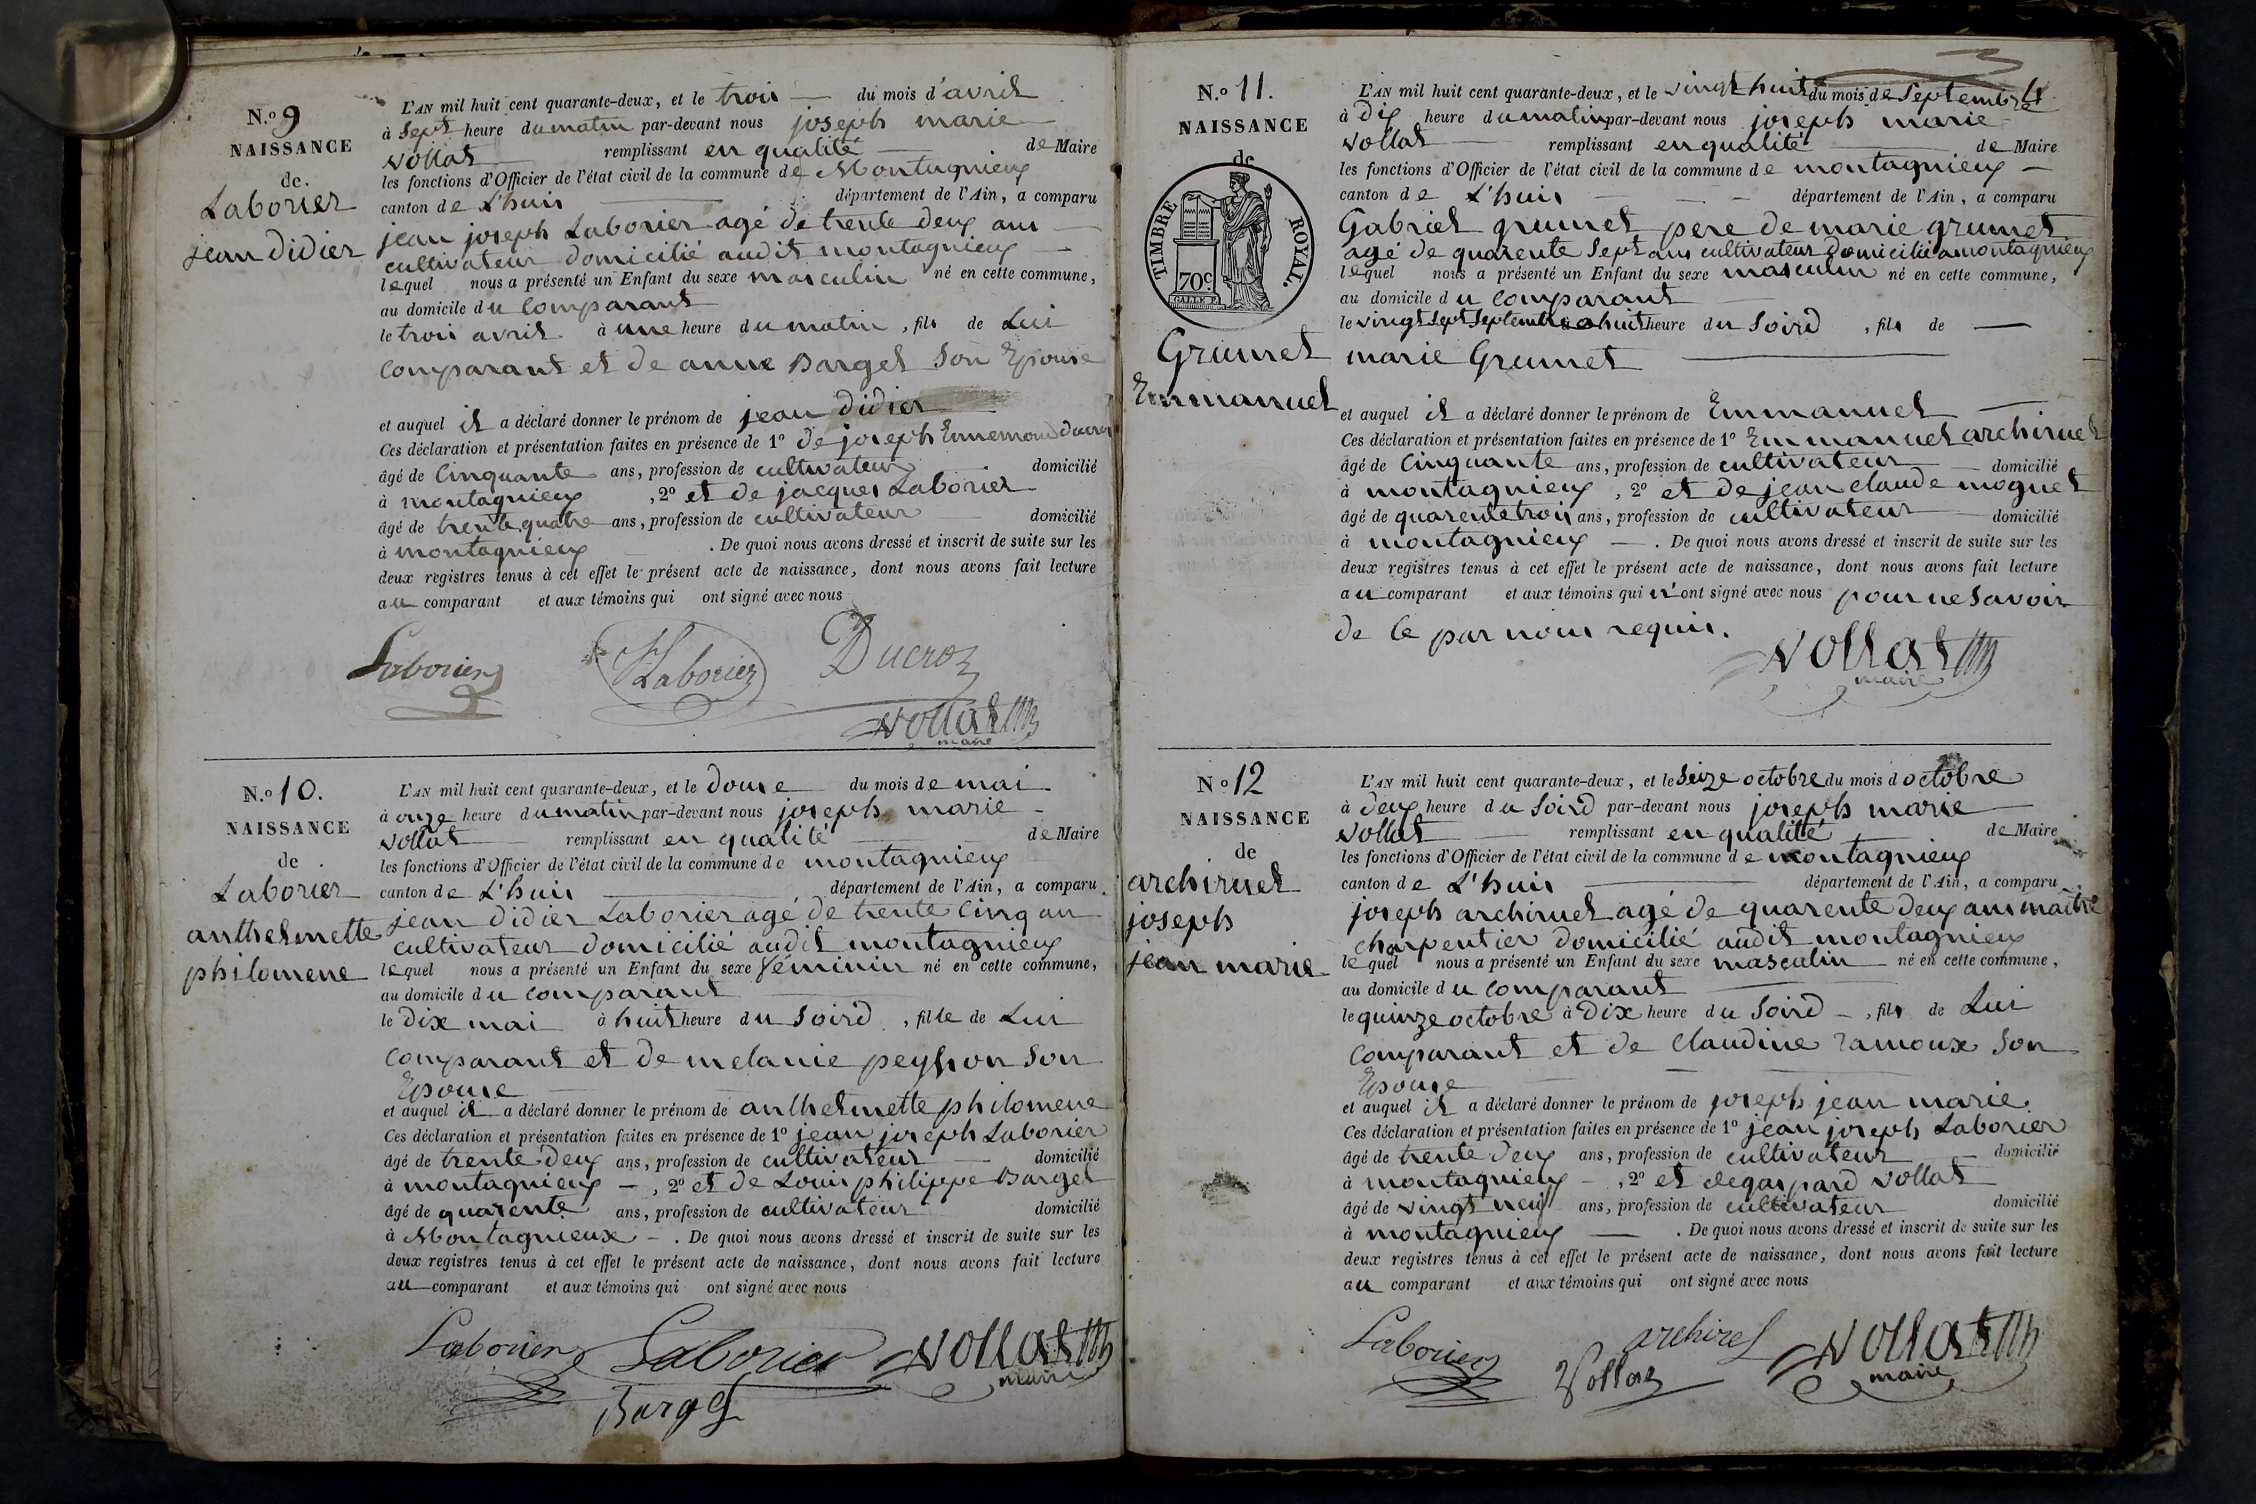 N.o 9
NAISSANCE
de.
Laborier
jean didier
L'AN mil huit cent quarante-deux, et le trois du mois d'avril
à sept heure du matin par-devant nous joseph marie
vollat remplissant en qualité de Maire
les fonctions d'Officier de l'état civil de la commune de Montagnieux
canton de L'huis département de l'Ain, a comparu
jean joseph Laborier agé de trente deux ans
cultivateur domicilié audit montagnieux
lequel nous a présenté un Enfant du sexe masculin né en cette commune,
au domicile du comparant
le trois avril à une heure du matin, fils de Lui
comparant et de anne Barget son Epouse
et auquel il a déclaré donner le prénom de jean didier
Ces déclaration et présentation faites en présence de 1o de joseph Ennemond ducroz
âgé de cinquante ans, profession de cultivateur domicilié
à montagnieux, 2o et de jacques Laborier
âgé de trente quatre ans, profession de cultivateur domicilié
à montagnieux. De quoi nous avons dressé et inscrit de suite sur les
deux registres tenus à cet effet le présent acte de naissance, dont nous avons fait lecture
au comparant et aux témoins qui ont signé avec nous
Laborier Laborier Ducroz
vollat
maire
N.o 10.
NAISSANCE
de
Laborier
anthelmette
philomene
L'AN mil huit cent quarante-deux, et le douse du mois de mai
à onze heure du matin par-devant nous joseph marie
vollat remplissant en qualité de Maire
les fonctions d'Officier de l'état civil de la commune de montagnieux
canton de L'huis département de l'Ain, a comparu
jean didier Laborier agé de trente cinq an
cultivateur domicilié audit montagnieux
lequel nous a présenté un Enfant du sexe féminin né en cette commune,
au domicile du comparant
le dix mai à huit heure du soird, fille de Lui
comparant et de melanie peysson son
Epouse
et auquel il a déclaré donner le prénom de anthelmette philomene
Ces déclaration et présentation faites en présence de 1o jean joseph Laborier
âgé de trente deux ans, profession de cultivateur domicilié
à montagnieux -, 2o et de Louis philippe Barget
âgé de quarente ans, profession de cultivateur domicilié
à Montagnieux -. De quoi nous avons dressé et inscrit de suite sur les
deux registres tenus à cet effet le présent acte de naissance, dont nous avons fait lecture
au comparant et aux témoins qui ont signé avec nous
Laborier Laborier vollat
maire
Barget
N.o 11.
NAISSANCE
de
TIMBRE ROYAL.
70c
Grumet
Emmanuel
L'AN mil huit cent quarante-deux, et le vingt huit du mois de Septembre
à dix heure du matin par-devant nous joseph marie
vollat remplissant en qualité de Maire
les fonctions d'Officier de l'état civil de la commune de montagnieux -
canton de L'huis département de l'Ain, a comparu
Gabriel grumet pere de marie grumet
agé de quarente sept ans cultivateur domicilié a montagnieux
lequel nous a présenté un Enfant du sexe masculin né en cette commune,
au domicile du comparant
le vingt sept septembre à huit heure du soird, fils de
marie Grumet
et auquel il a déclaré donner le prénom de Emmanuel
Ces déclaration et présentation faites en présence de 1o Emmanuel archiruel
âgé de cinquante ans, profession de cultivateur domicilié
à montagnieux, 2o et de jean claude moguet
âgé de quarente trois ans, profession de cultivateur domicilié
à montagnieux -. De quoi nous avons dressé et inscrit de suite sur les
deux registres tenus à cet effet le présent acte de naissance, dont nous avons fait lecture
au comparant et aux témoins qui n'ont signé avec nous pour ne savoir
de ce par nous requis.
vollat
maire
No 12
NAISSANCE
de
archiruel
joseph
jean marie
L'AN mil huit cent quarante-deux, et le seize octobre du mois d octobre
à deux heure du soird par-devant nous joseph marie
vollat remplissant en qualité de Maire
les fonctions d'Officier de l'état civil de la commune de montagnieux
canton de L'huis département de l'Ain, a comparu
joseph archiruel agé de quarente deux ans maitre
charpentier domicilié audit montagnieux
lequel nous a présenté un Enfant du sexe masculin né en cette commune,
au domicile du comparant
le quinze octobre à dix heure du soird -, fils de Lui
comparant et de claudine ramoux son
Epouse
et auquel il a déclaré donner le prénom de joseph jean marie
Ces déclaration et présentation faites en présence de 1o jean joseph Laborier
âgé de trente deux ans, profession de cultivateur domicilié
à montagnieux -, 2o et de gaspard vollat
âgé de vingt neuf ans, profession de cultivateur domicilié
à montagnieux. De quoi nous avons dressé et inscrit de suite sur les
deux registres tenus à cet effet le présent acte de naissance, dont nous avons fait lecture
au comparant et aux témoins qui ont signé avec nous
Laborier Vollaz archirel vollat
maire